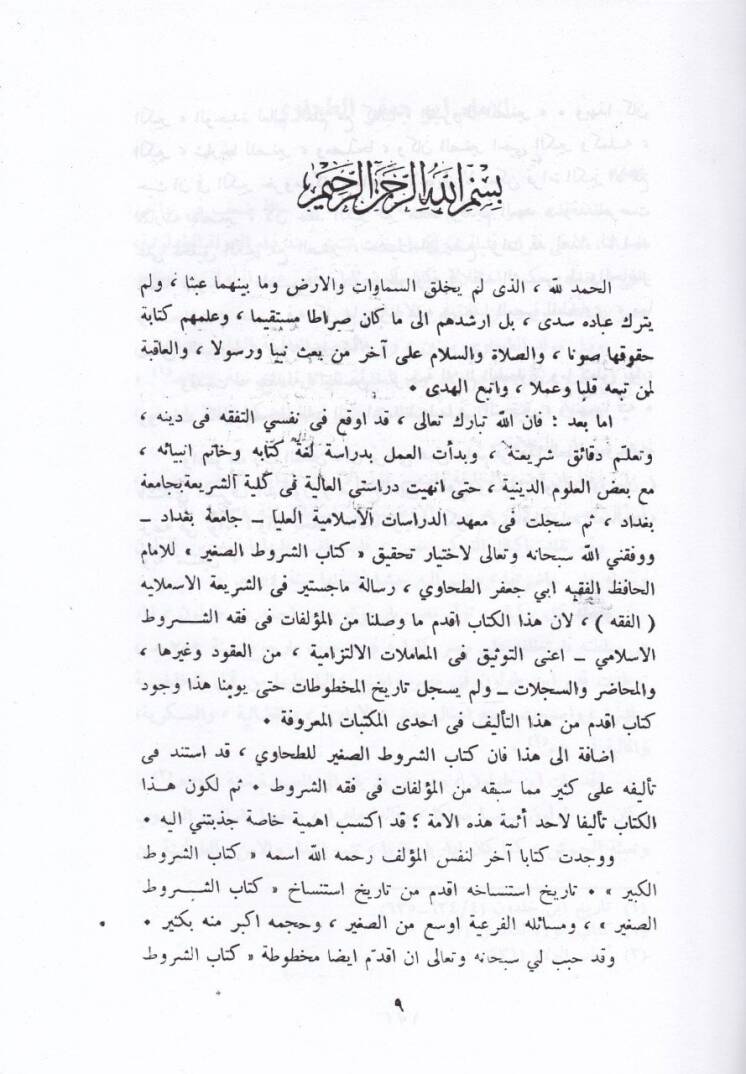 بسم الله الرحمن الرحيم
الحمد لله ، الذى لم يخلق السماوات والارض وما بينهما عبثا ، ولم
يترك عباده سدى ، بل ارشدهم الى ما كان صراطا مستقيما ، وعلمهم كتابة
حقوقها صونا ، والصلاة والسلام على آخر من بعث نبيا ورسولا ، والعاقبة
لمن تبعه قلبا وعملا ، واتبع الهدى ٠
اما بعد : فان الله تبارك تعالى ، قد اوقع فى نفسي التفقه فى دينه ،
وتعلم دقائق شريعته ، وبدأت العمل بدراسة لغة كتابه وخاتم انبيائه ،
مع بعض العلوم الدينية ، حتى انهيت دراستي العالية فى كلية الشريعة بجامعة
بغداد ، ثم سجلت فى معهد الدراسات الاسلامية العليا ــ جامعة بغداد ــ
ووفقني الله سبحانه وتعالى لاختيار تحقيق « كتاب الشروط الصغير » للامام
الحافظ الفقيه ابي جعفر الطحاوي ، رسالة ماجستير فى الشريعة الاسملايه
( الفقه ) ، لان هذا الكتاب اقدم ما وصلنا من المؤلفات فى فقه الشــروط
الاسلامي ــ اعنى التوثيق فى المعاملات الالتزامية ، من العقود وغيرها ،
والمحاضر والسجلات ــ ولم يسجل تاريخ المخطوطات حتى يومنا هذا وجود
كتاب اقدم من هذا التأليف فى احدى المكتبات المعروفة ٠
اضافة الى هذا فان كتاب الشروط الصغير للطحاوي ، قد استند فى
تأليفه على كثير مما سبقه من المؤلفات فى فقه الشروط ٠ ثم لكون هــذا
الكتاب تأليفا لاحد أئمة هذه الامة ؛ قد اكتسب اهمية خاصة جذبتني اليه ٠
ووجدت كتابا آخر لنفس المؤلف رحمه الله اسمه « كتاب الشروط
الكبير » ٠ تاريخ استنساخه اقدم من تاريخ استنساخ « كتاب الشــروط
الصغير » ، ومسائله الفرعية اوسع من الصغير ، وحجمه اكبر منه بكثير ٠
وقد حبب لي سبحانه وتعالى ان اقدم ايضا مخطوطة « كتاب الشروط
٩